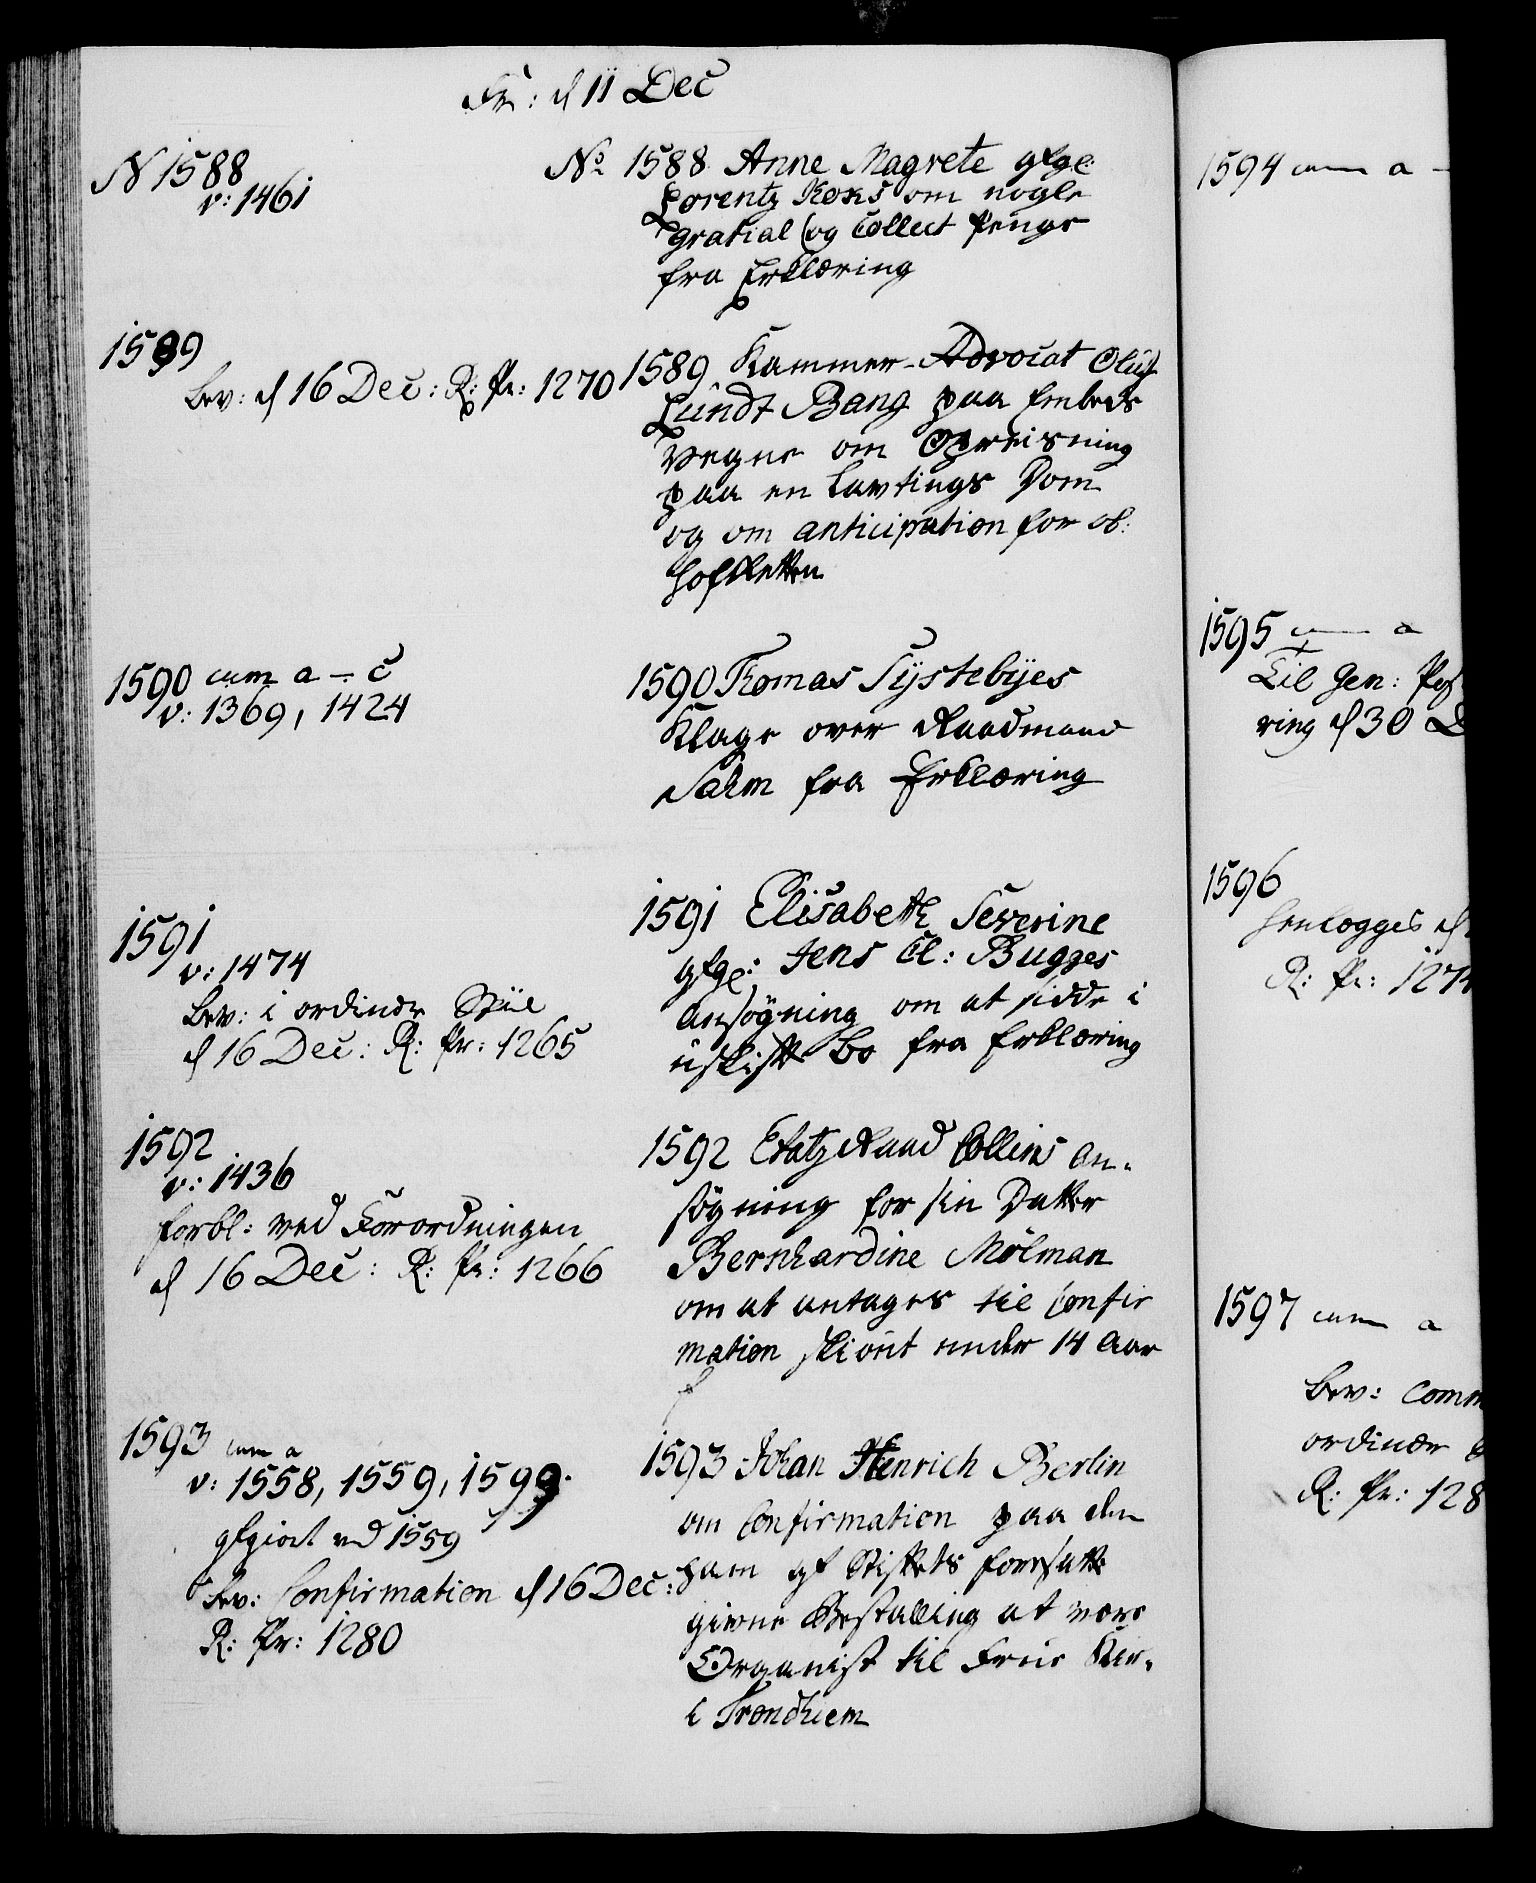 Fr: d 11 Dec
N 1588
v: 1461
No 1588 Anne Magrete gfge:
Lorentz Koks om nogle
gratial og Collect Penge
fra Erklæring
1589
bev: d 16 Dec: R: Pr: 1270
1589 Kammer-Advocat Oluf
Lundt Bang paa Embeds
Vegne om Opreisning
paa en Lavtings Dom
og om anticipation for ob:
hofretten
1590 cum a - c
v: 1369, 1424
1590 Thomas Systebyes
Klage over Raadmand
Sahm fra Erklæring
1591
v: 1474
bev: i ordinair Stiil
d 16 Dec: R: Pr: 1265
1591 Elisabeth Severine
gfge: Jens Cl: Bugges
ansøgning om at sidde i
uskifte bo fra Erklæring
1592
v: 1436
forbl: ved Forordningen
d 16 Dec: R: Pr: 1266
1592 Etatz Raad Collins An-
søgning for sin Datter
Bernhardine Mølman
om at antages til Confir
mation skiønt under 14 Aar
1593 cum a
v: 1558, 1559, 1599.
gfgiort ved 1559
bev: Confirmation d 16 Dec:
R: Pr: 1280
1593 Johan Henrich Berlin
om Confirmation paa den
ham af Stiftets forresatte
givne Bestalling at være
Organist til Frue Kir-
i Trondhiem
1594 cum a -
1595 cum a
Til Gen:
ring d 30
1596
henlægges d
R: Pr: 1274
1597 cum a
bev: comm
ordinær
R: Pr: 128